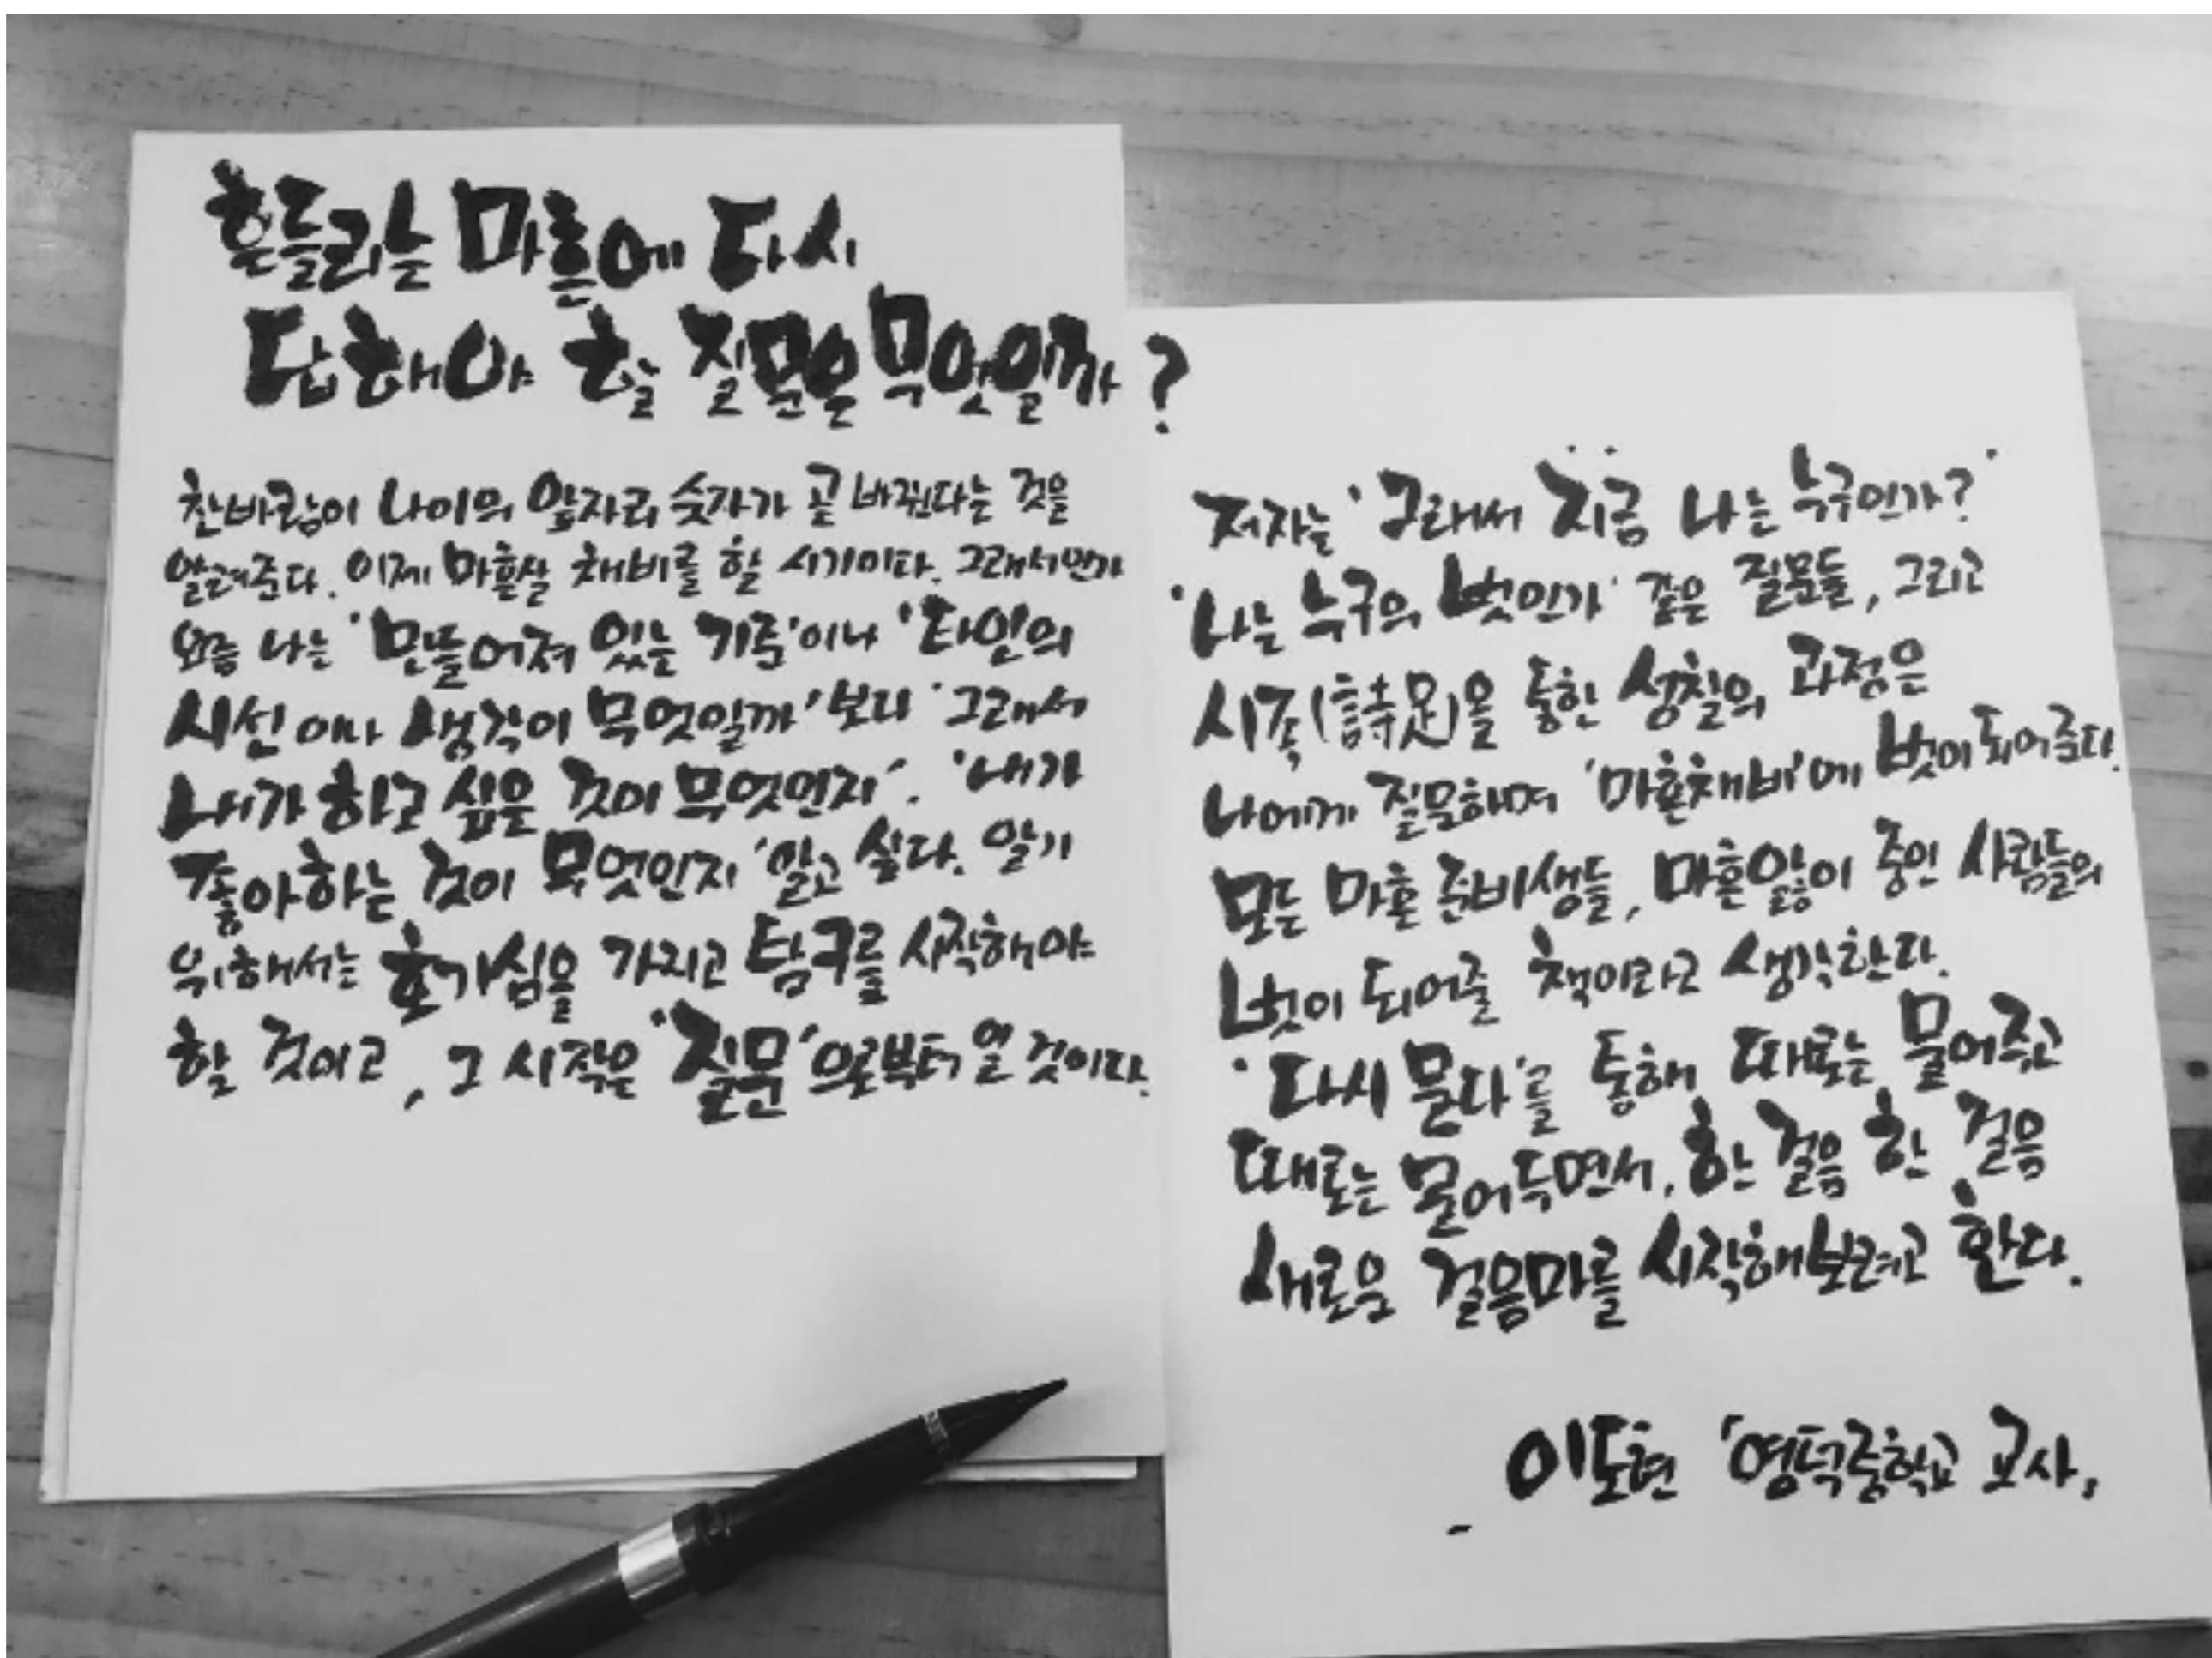 흔들리는 마흔에 다시
답해야 할 질문은 무엇일까?
찬바람이 나이의 앞자리 숫자가 곧 바뀐다는 것을
알려준다. 이제 마흔살 채비를 할 시기이다. 그래서인가
요즘 나는 '만들어져 있는 기준'이나 '타인의
시선이나 생각이 무엇일까'보다 '그래서
내가 하고 싶은 것이 무엇인지'. '내가
좋아하는 것이 무엇인지'알고 싶다. 알기
위해서는 호기심을 가지고 탐구를 시작해야
할 것이고, 그 시작은 '질문'으로부터 일 것이다.
저자는 '그래서 지금 나는 누구인가?'
'나는 누구의 벗인가' 같은 질문들, 그리고
시족(詩足)을 통한 성찰의 과정은
나에게 질문하며 '마흔채비'에 벗이 되어준다.
모든 마흔 준비생들, 마흔앓이 중인 사람들의
벗이 되어줄 책이라고 생각한다.
'다시 묻다'를 통해 때로는 물어주고
때로는 묻어두면서, 한 걸음 한 걸음
새로운 걸음마를 시작해보려고 한다.
- 이도현 '영덕중학교 교사,